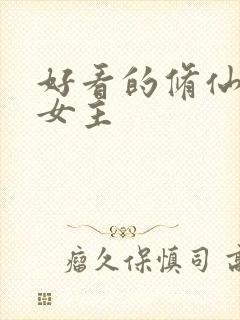 好看的脩仙
女主
瘤久保慎司 高